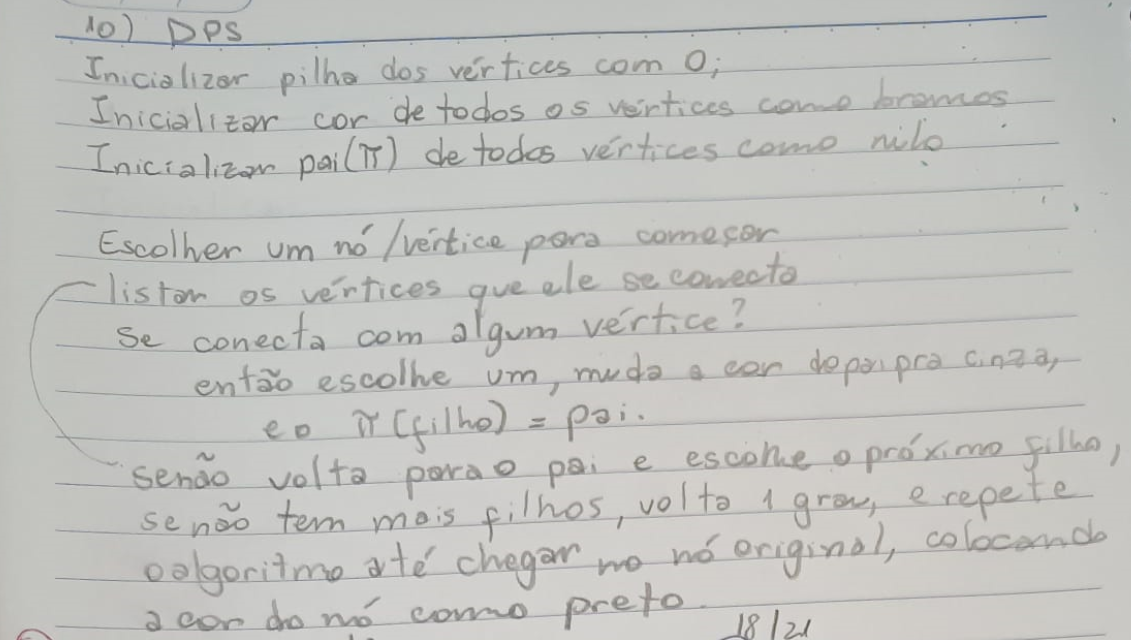 10) DPS
Inicializar pilha dos vértices com 0;
Inicializar cor de todos os vértices como bramos
Inicializar pai(π) de todos vértices como nilo
Escolher um nó/vértice para começar
listar os vértices que ele se conecta
se conecta com algum vértice?
então escolhe um, muda a cor do pai pra cinza,
e o π(filho) = pai.
senão volta para o pai e escolhe o próximo filho,
se não tem mais filhos, volta 1 grau, e repete
o algoritmo até chegar no nó original, colocando
a cor do nó como preto.
18/21